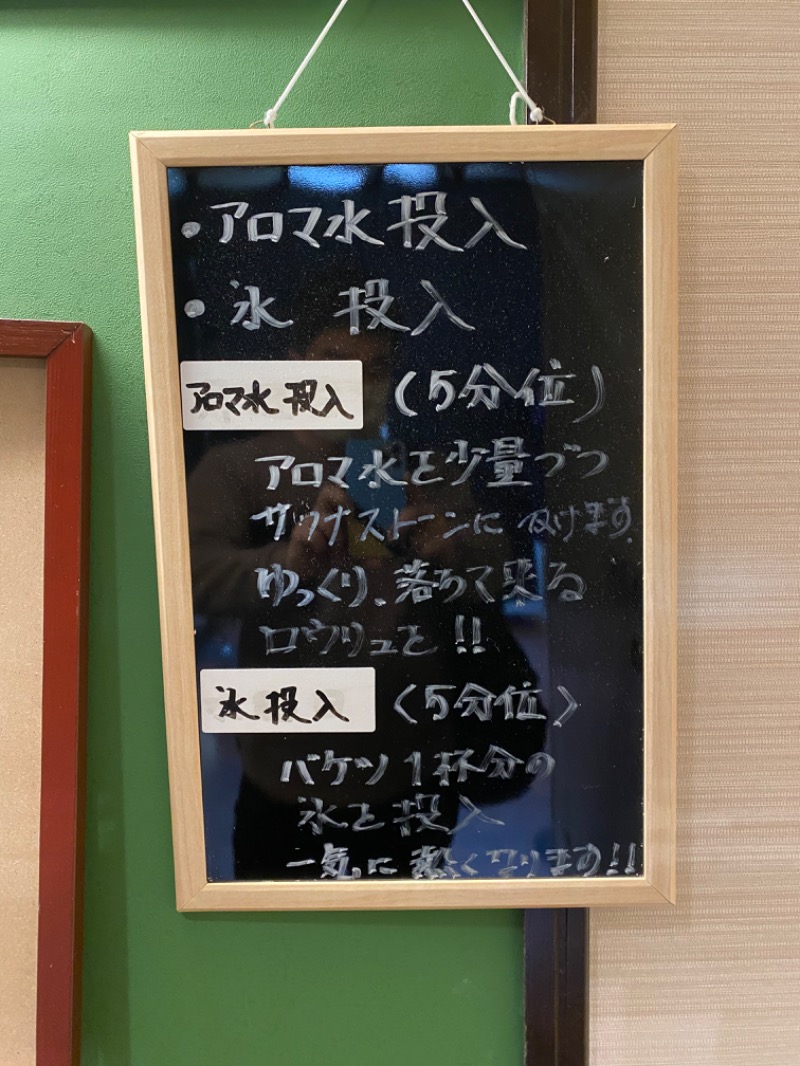 ・アロマ水投入
・氷 投入
アロマ水投入 (5分位)
アロマ水を少量づつ
サウナストーンに及けます。
ゆっくり、落ちて来る
ロウリュを!!
氷投入 (5分位)
バケツ1杯分の
氷を投入
一気に熱くなります!!